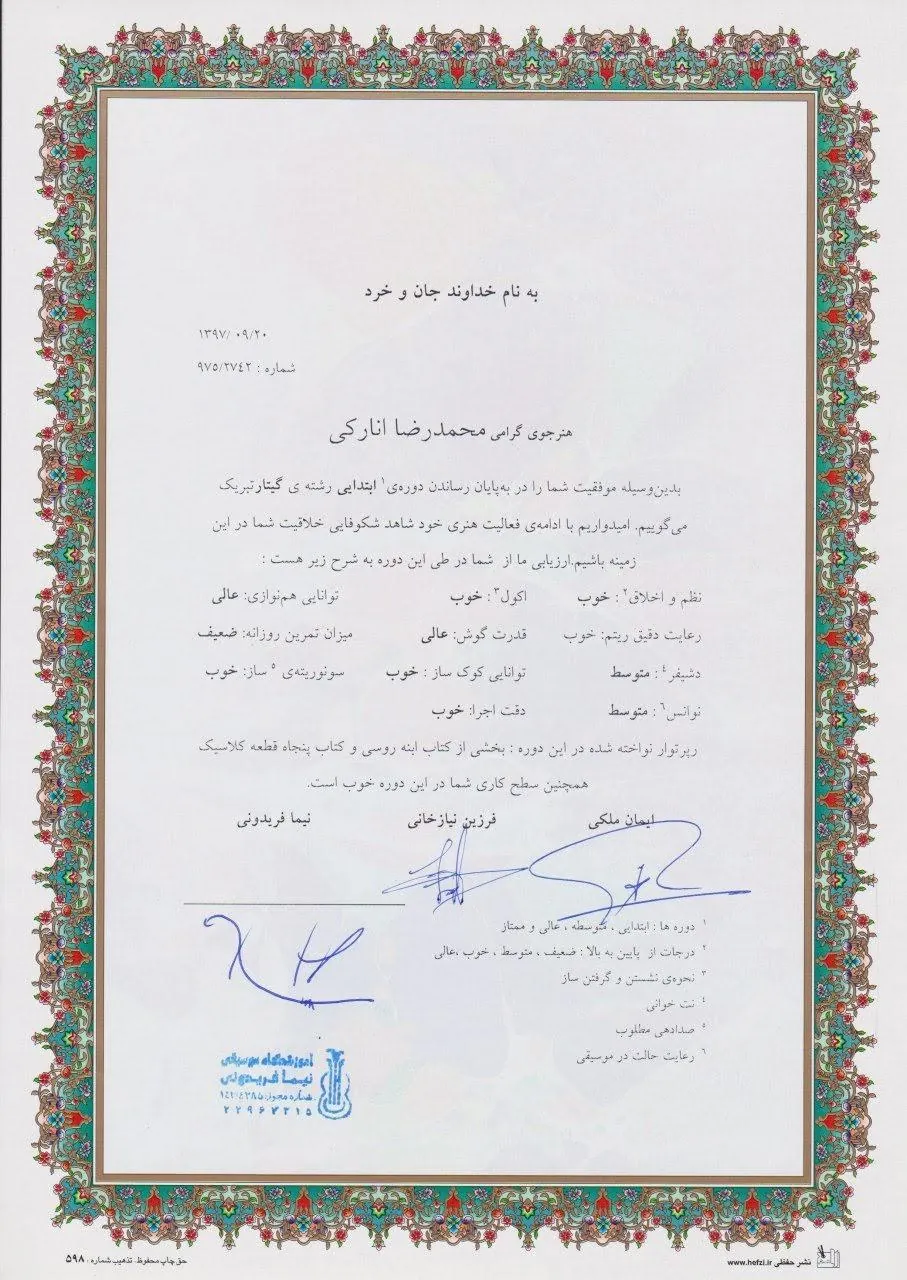 به نام خداوند جان و خرد
۱۳۹۷/ ۰۹/۲۰
شماره : ۹۷۵/۲۷٤۲
هنرجوی گرامی محمدرضا انارکی
بدین‌وسیله موفقیت شما را در به‌پایان رساندن دوره‌ی۱ ابتدایی رشته ی گیتارتبریک
می‌گوییم. امیدواریم با ادامه‌ی فعالیت هنری خود شاهد شکوفایی خلاقیت شما در این
زمینه باشیم.ارزیابی ما از شما در طی این دوره به شرح زیر هست :
نظم و اخلاق۲ : خوب اکول۳ : خوب توانایی هم‌نوازی: عالی
رعایت دقیق ریتم: خوب قدرت گوش: عالی میزان تمرین روزانه: ضعیف
دشیفر٤ : متوسط توانایی کوک ساز : خوب سونوریته‌ی ۵ ساز: خوب
نوانس٦ : متوسط دقت اجرا: خوب
رپرتوار نواخته شده در این دوره : بخشی از کتاب ابنه روسی و کتاب پنجاه قطعه کلاسیک
همچنین سطح کاری شما در این دوره خوب است.
ایمان ملکی فرزین نیازخانی نیما فریدونی
۱ دوره ها : ابتدایی ، متوسطه ، عالی و ممتاز
۲ درجات از پایین به بالا : ضعیف ، متوسط ، خوب ،عالی
۳ نحوه‌ی نشستن و گرفتن ساز
٤ نت خوانی
۵ صدادهی مطلوب
٦ رعایت حالت در موسیقی
آموزشگاه موسیقی
نیما فریدونی
شماره مجوز:
۲۲۹۶۷۳۱۵
نشر حفظی www.hefzi.ir
حق چاپ محفوظ. تذهیب شماره : ۵۹۸